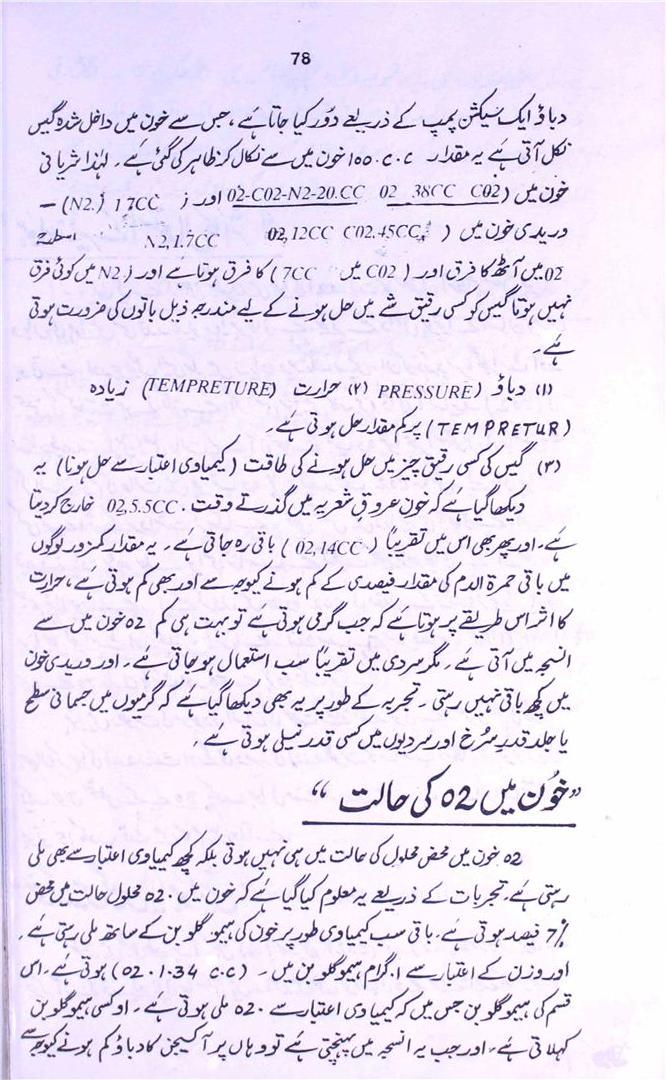 78
دباؤ ایک سیکشن پمپ کے ذریعے دُور کیا جاتا ہے، جس سے خون میں داخل شدہ گیس
نکل آتی ہے یہ مقدار 100.c.c خون میں سے نکال کر ظاہر کی گئی ہے۔ لہٰذا شریانی
خون میں (02-C02-N2-20.CC 02 38CC C02 اور ز N2.) 1 7CC) –
وریدی خون میں ( 02,12CC C02.45CC, N2,1.7CC اسطرح
02 میں آٹھ کا فرق اور ( C02 میں 7CC ) کا فرق ہوتا ہے اور ز N2 میں کوئی فرق
نہیں ہوتا گیس کو کسی رقیق شے میں حل ہونے کے لیے مندرجہ ذیل باتوں کی ضرورت ہوتی
ہے۔
(۱) دباؤ (PRESSURE (۲) حرارت (TEMPRETURE) زیادہ
(TEMPRETUR) پر کم مقدار حل ہوتی ہے۔
(۳) گیس کی کسی رقیق چیز میں حل ہونے کی طاقت (کیمیاوی اعتبار سے حل ہونا) یہ
دیکھا گیا ہے کہ خون عروق شعریہ میں گذرتے وقت 02,5.5CC. خارج کر دیتا
ہے۔ اور پھر بھی اس میں تقریباً (02,14CC ) باقی رہ جاتی ہے۔ یہ مقدار کمزور لوگوں
میں باقی حمرۃ الدم کی مقدار فیصدی کے کم ہونے کیوجہ سے اور بھی کم ہوتی ہے، حرارت
کا اثر اس طریقے پر ہوتا ہے کہ جب گرمی ہوتی ہے تو بہت ہی کم o2 خون میں سے
انسجہ میں آتی ہے۔ مگر سردی میں تقریباً سب استعمال ہو جاتی ہے۔ اور وریدی خون
میں کچھ باقی نہیں رہتی۔ تجربہ کے طور پر یہ بھی دیکھا گیا ہے کہ گرمیوں میں جسمانی سطح
یا جلد قدرِ سُرخ اور سردیوں میں کسی قدر نیلی ہوتی ہے،
”خُون میں o2 کی حالت“
o2 خون میں محض محلول کی حالت میں ہی نہیں ہوتی بلکہ کچھ کیمیاوی اعتبار سے بھی ملی
رہتی ہے۔ تجربات کے ذریعے یہ معلوم کیا گیا ہے کہ خون میں o2۰ محلول حالت میں محض
7% فیصد ہوتی ہے۔ باقی سب کیمیاوی طور پر خون کی ہیموگلوبن کے ساتھ ملی رہتی ہے۔
اور وزن کے اعتبار سے ۱ گرام ہیموگلوبن میں۔ (o2 ۰1۰34 c.c) ہوتی ہے۔ اس
قسم کی ہیموگلوبن جس میں کہ کیمیاوی اعتبار سے o2۰ ملی ہوتی ہے۔ اوکسی ہیموگلوبن
کہلاتی ہے۔ اور جب یہ انسجہ میں پہنچتی ہے تو وہاں پر آکسیجن کا دباؤ کم ہونے کیوجہ سے